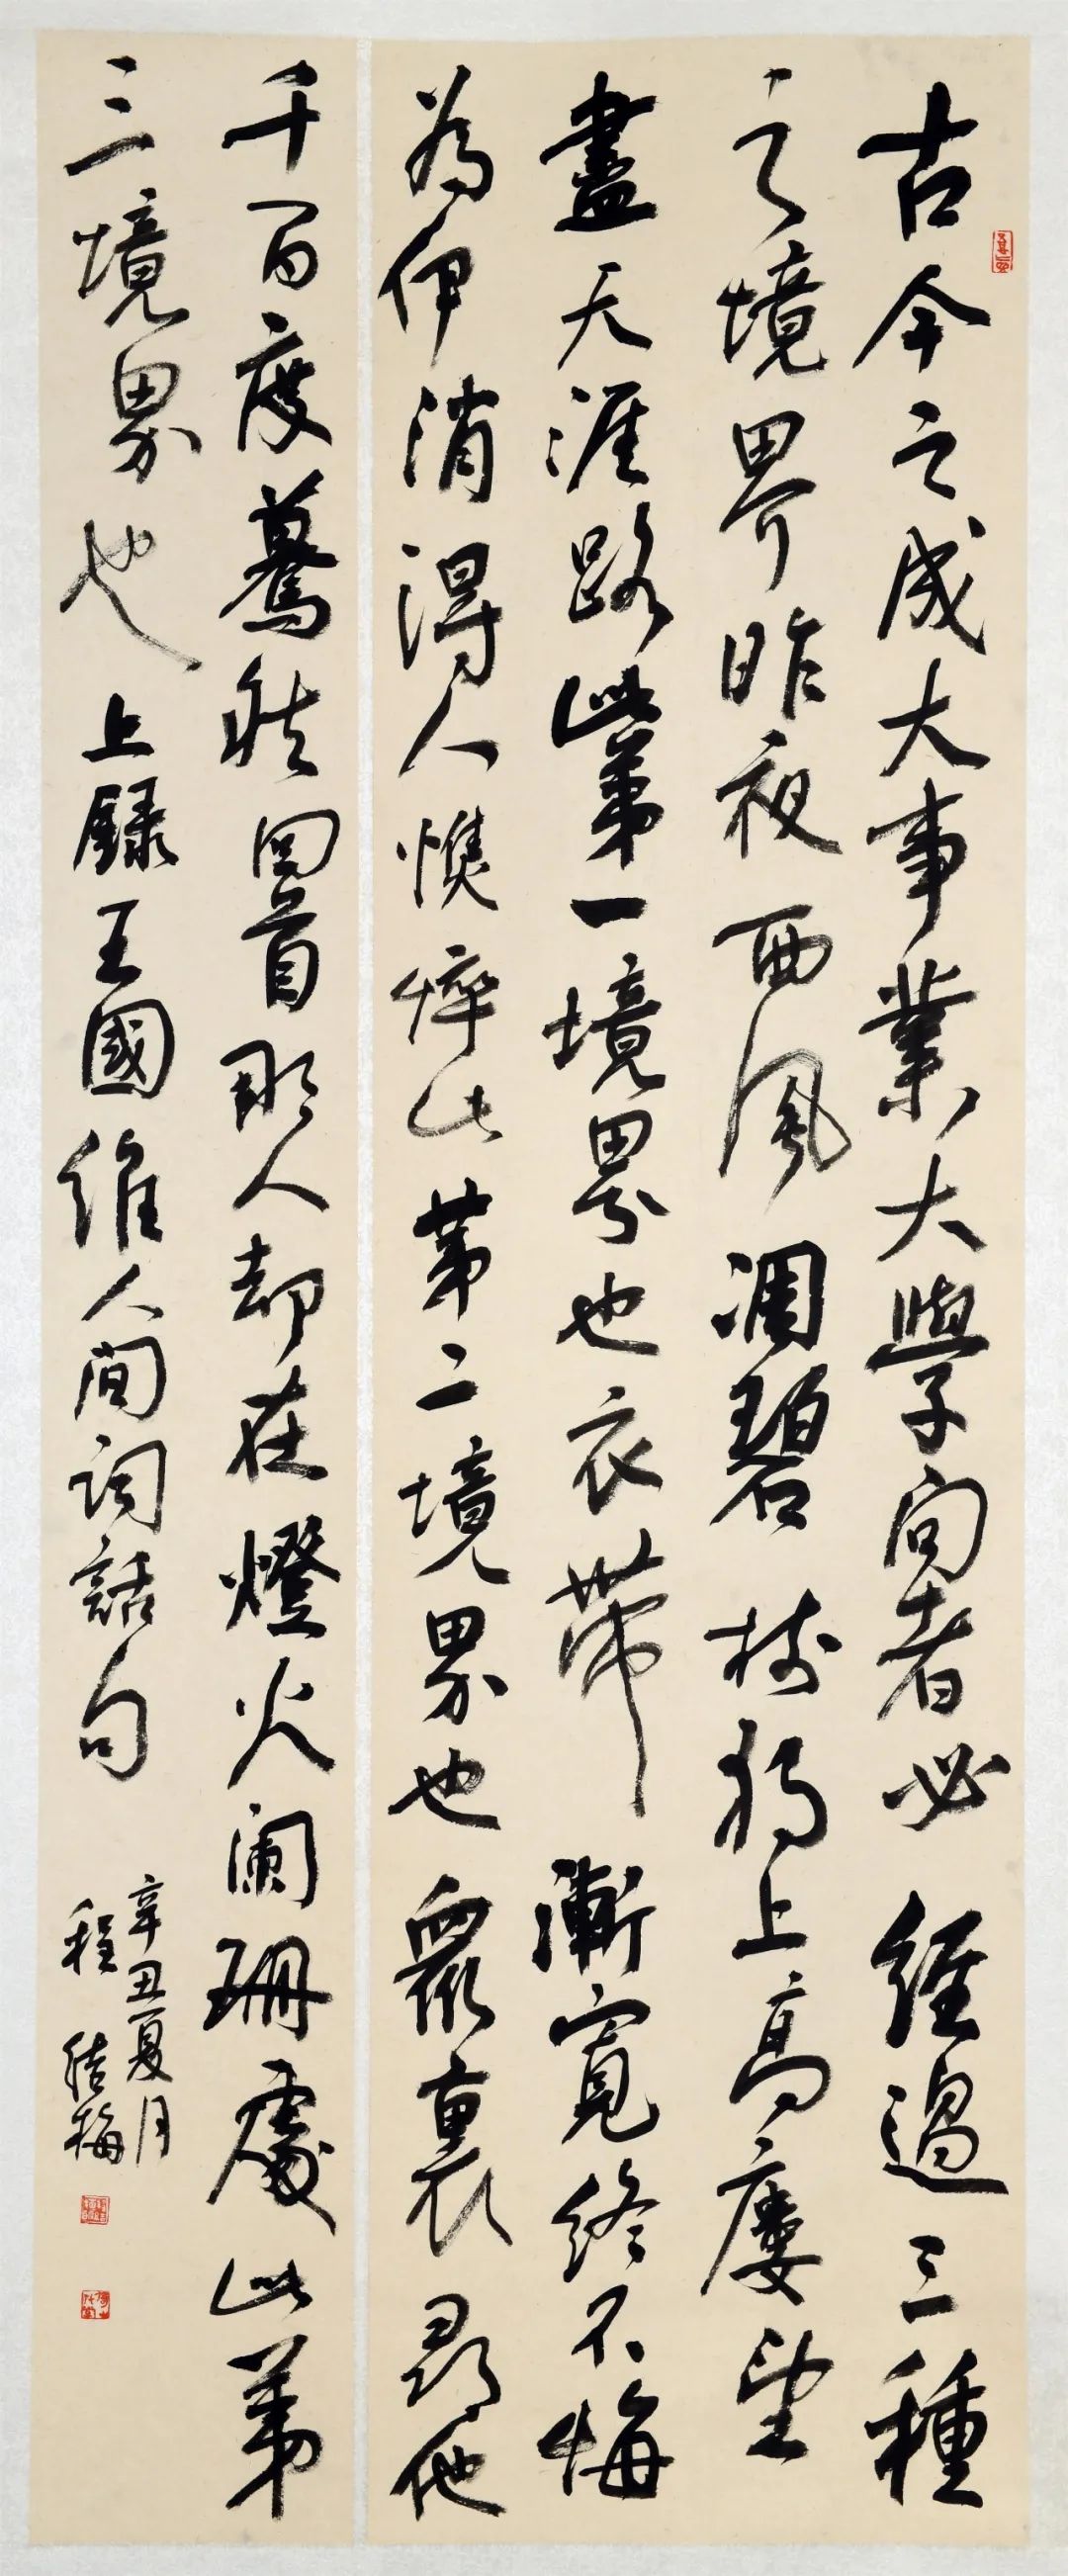 古今之成大事業大學問者必經過三種
之境界昨夜西風凋碧樹獨上高樓望
盡天涯路此第一境界也衣帶漸寬終不悔
為伊消得人憔悴此第二境界也眾裏尋他
千百度驀然回首那人却在燈火闌珊處此第
三境界也 上錄王國維人間詞話句
辛丑夏月
程結梅